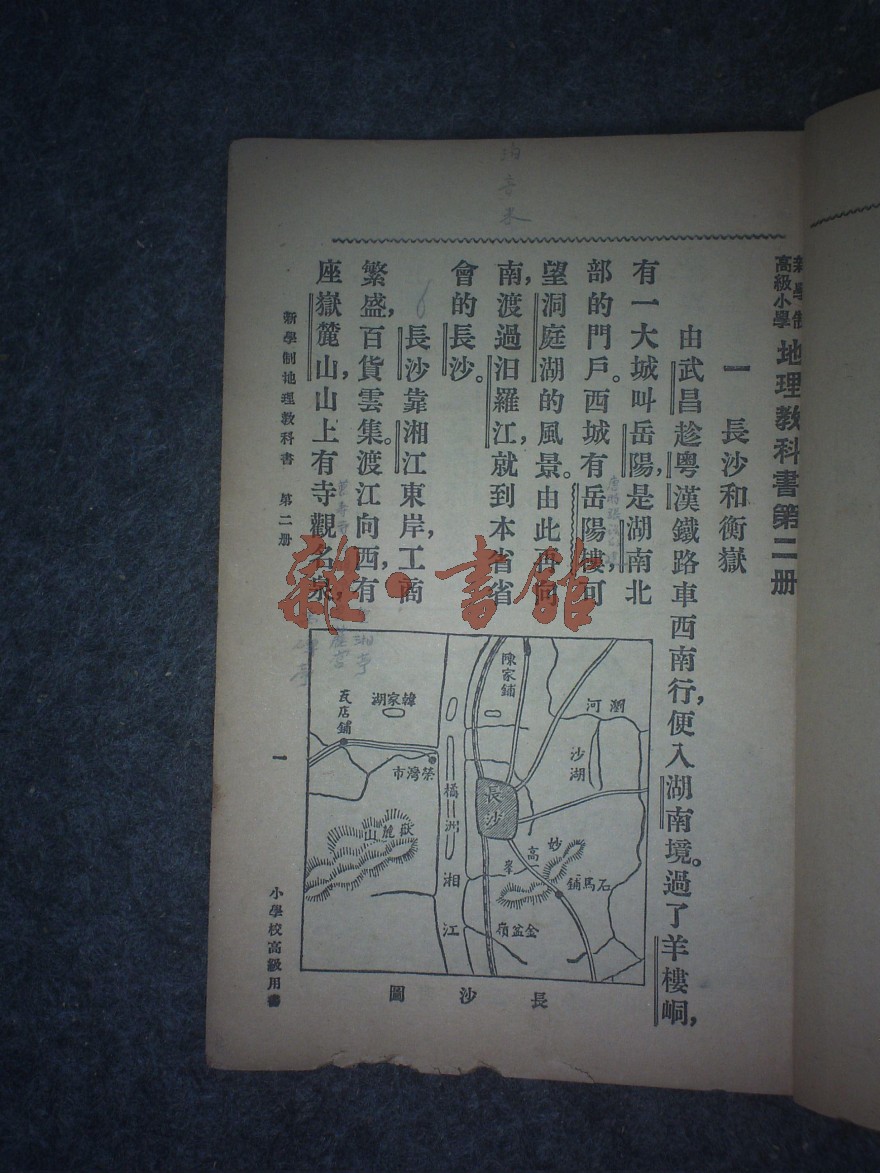 新學制
高級小學
地理教科書第二册
一　長沙和衡嶽
由武昌趁粵漢鐵路車西南行，便入湖南境。過了羊樓峒，
有一大城叫岳陽，是湖南北
部的門戶。西城有岳陽樓，可
望洞庭湖的風景。由此再向
南，渡過汨羅江，就到本省省
會的長沙。
長沙靠湘江東岸，工商
繁盛，百貨雲集。渡江向西，有
座嶽麓山，山上有寺觀名泉，
新學制地理教科書　第二册
一
小學校高級用書
陳家鋪
瀏河
沙湖
韓家湖
瓦店鋪
榮灣市
長沙
橘洲
湘江
嶽麓山
妙高峯
石馬鋪
金盆嶺
長沙圖
雜·書館